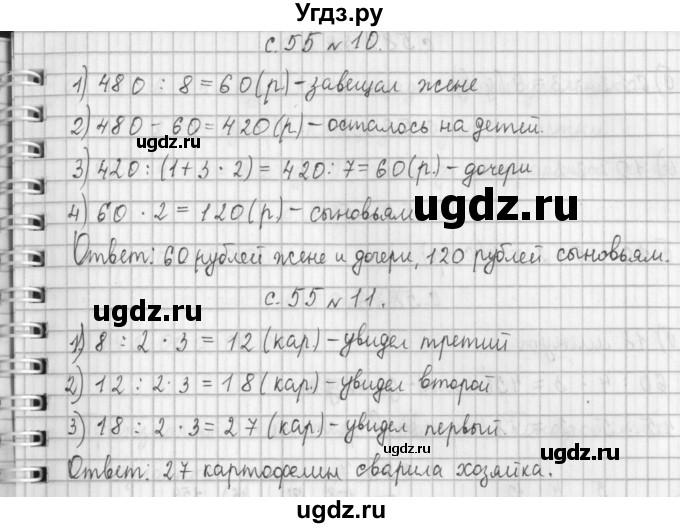 Угдз.ру
с. 55 № 10.
1) 480 : 8 = 60 (р) – завещал жене
2) 480 – 60 = 420 (р) – осталось на детей.
ugdz.ru
3) 420 : (1 + 3 · 2) = 420 : 7 = 60 (р.) – дочери
4) 60 · 2 = 120 (р) – сыновьям
ugdz.ru
Ответ: 60 рублей жене и дочери, 120 рублей сыновьям.
ugdz.ru
с. 55 № 11.
1) 8 : 2 · 3 = 12 (кар) – увидел третий
2) 12 : 2 · 3 = 18 (кар) – увидел второй
3) 18 : 2 · 3 = 27 (кар) – увидел первый.
ugdz.ru
Ответ: 27 картофелин сварила хозяйка.
ugdz.ru